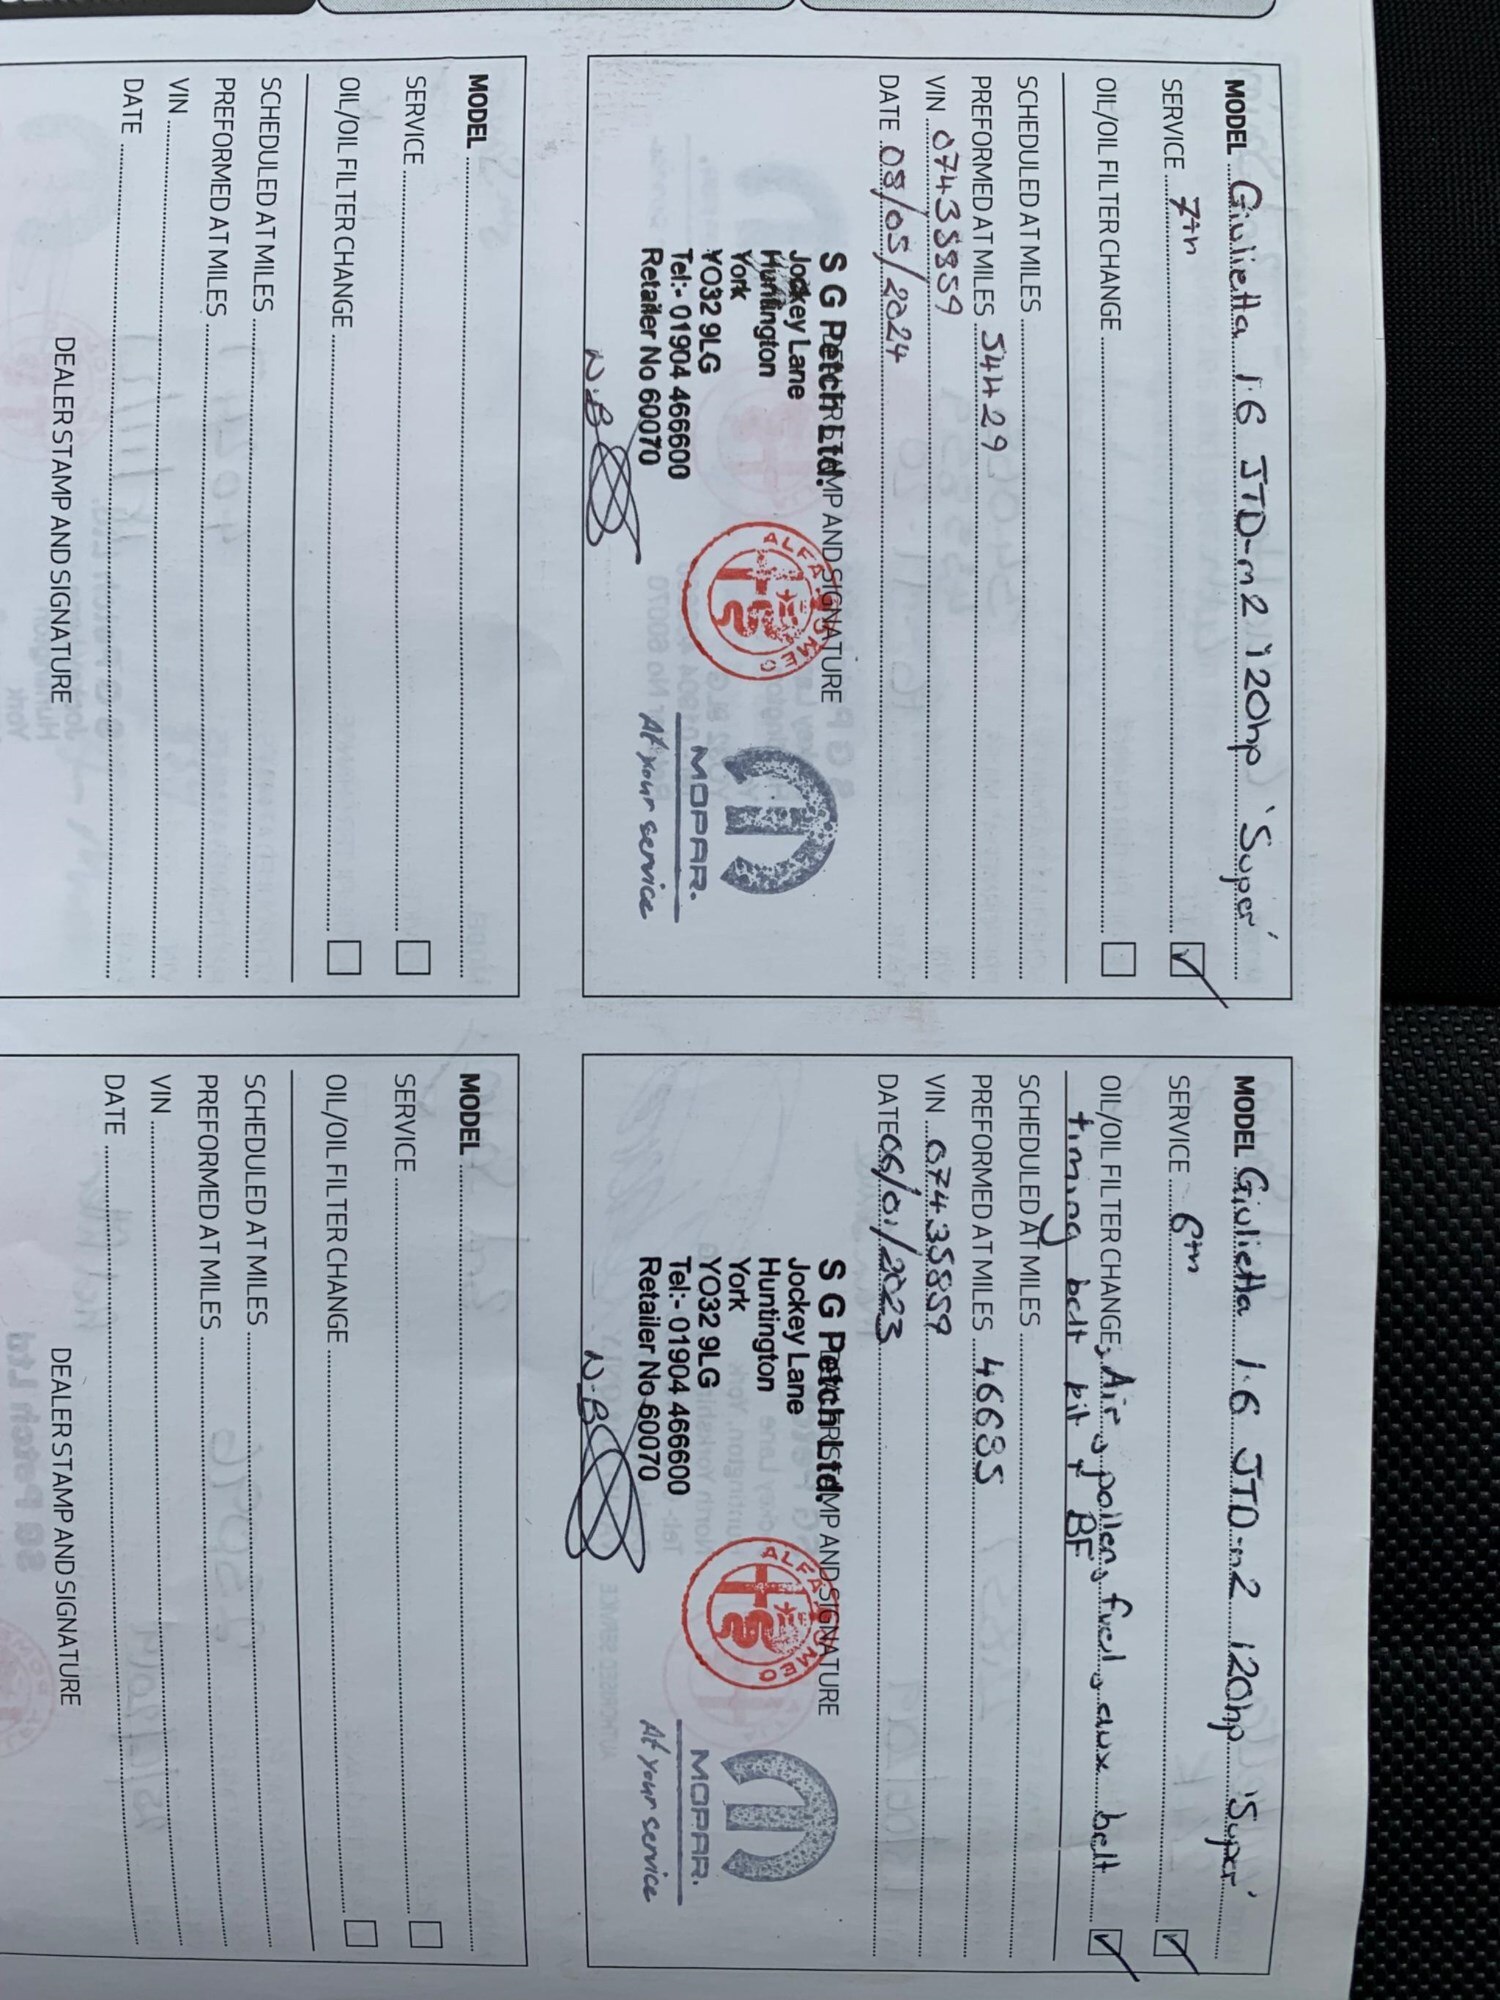 MODEL Giulietta 1.6 JTD-m2 120hp 'Super'
SERVICE 7th
OIL/OIL FILTER CHANGE
SCHEDULED AT MILES
PREFORMED AT MILES 54429
VIN 07435859
DATE 08/05/2024
DEALER STAMP AND SIGNATURE
S G Petch Ltd.
Jockey Lane
Huntington
York
YO32 9LG
Tel:- 01904 466600
Retailer No 60070
N.B
ALFA ROMEO
MOPAR.
At your service
MODEL Giulietta 1.6 JTD-m2 120hp 'Super'
SERVICE 6th
OIL/OIL FILTER CHANGE, Air, pollen, fuel, aux belt
timing belt kit + BF
SCHEDULED AT MILES
PREFORMED AT MILES 46685
VIN 07435859
DATE 06/01/2023
DEALER STAMP AND SIGNATURE
S G Petch Ltd.
Jockey Lane
Huntington
York
YO32 9LG
Tel:- 01904 466600
Retailer No 60070
N.B
ALFA ROMEO
MOPAR.
At your service
MODEL
SERVICE
OIL/OIL FILTER CHANGE
SCHEDULED AT MILES
PREFORMED AT MILES
VIN
DATE
DEALER STAMP AND SIGNATURE
MODEL
SERVICE
OIL/OIL FILTER CHANGE
SCHEDULED AT MILES
PREFORMED AT MILES
VIN
DATE
DEALER STAMP AND SIGNATURE